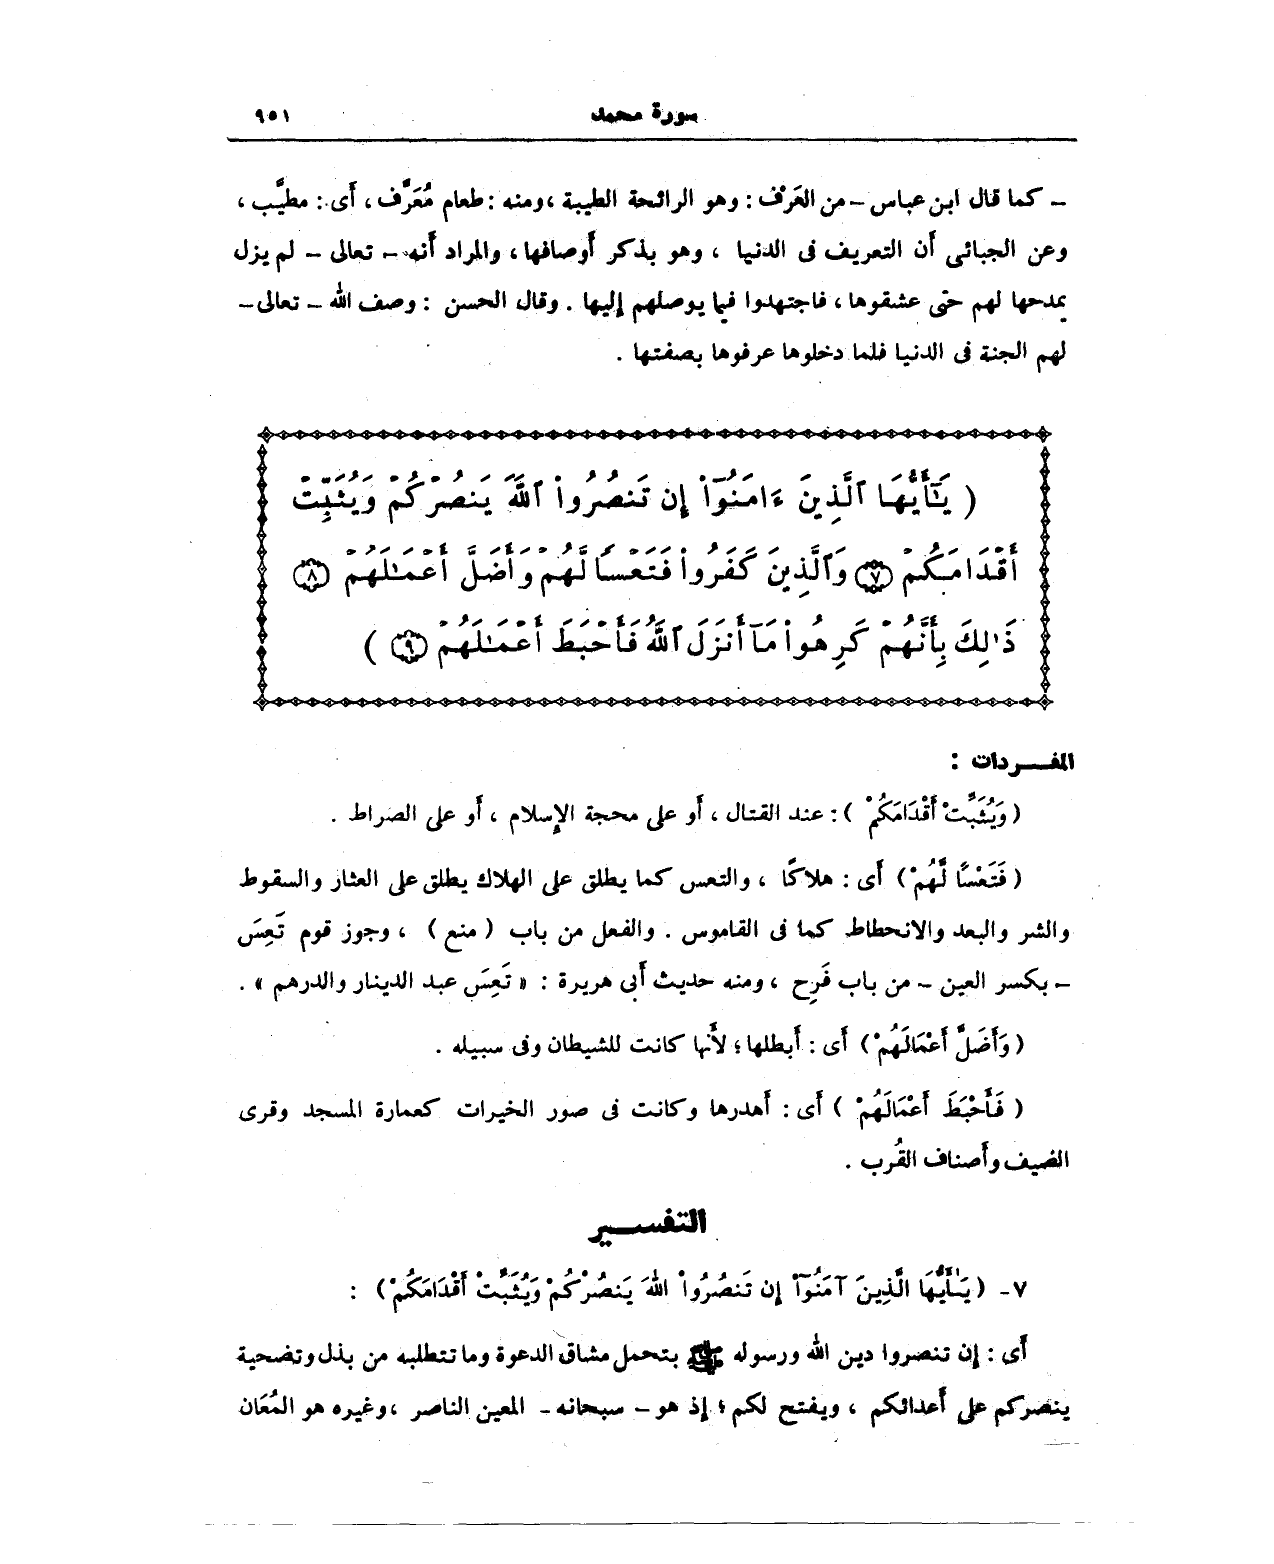 سورة محمد ٩٥١
ـ كما قال ابن عباس ـ من العَرْف : وهو الرائحة الطيبة ، ومنه : طعام مُعَرَّف ، أى : مطيَّب ،
وعن الجبائى أن التعريف فى الدنيا ، وهو بذكر أوصافها ، والمراد أنه ـ تعالى ـ لم يزل
يمدحها لهم حتى عشقوها ، فاجتهدوا فيما يوصلهم إليها . وقال الحسن : وصف الله ـ تعالى ـ
لهم الجنة فى الدنيا فلما دخلوها عرفوها بصفتها .
( يَـٰٓأَيُّهَا ٱلَّذِينَ ءَامَنُوٓا۟ إِن تَنصُرُوا۟ ٱللَّهَ يَنصُرْكُمْ وَيُثَبِّتْ
أَقْدَامَكُمْ ٧ وَٱلَّذِينَ كَفَرُوا۟ فَتَعْسًا لَّهُمْ وَأَضَلَّ أَعْمَـٰلَهُمْ ٨
ذَٰلِكَ بِأَنَّهُمْ كَرِهُوا۟ مَآ أَنزَلَ ٱللَّهُ فَأَحْبَطَ أَعْمَـٰلَهُمْ ٩ )
المفــردات :
( وَيُثَبِّتْ أَقْدَامَكُمْ ) : عند القتال ، أو على محجة الإسلام ، أو على الصراط .
( فَتَعْسًا لَّهُمْ ) أى : هلاكًا ، والتعس كما يطلق على الهلاك يطلق على العثار والسقوط
والشر والبعد والانحطاط كما فى القاموس . والفعل من باب ( منع ) ، وجوز قوم تَعِسَ
ـ بكسر العين ـ من باب فَرِح ، ومنه حديث أبى هريرة : « تَعِسَ عبد الدينار والدرهم » .
( وَأَضَلَّ أَعْمَالَهُمْ ) أى : أبطلها ؛ لأنها كانت للشيطان وفى سبيله .
( فَأَحْبَطَ أَعْمَالَهُمْ ) أى : أهدرها وكانت فى صور الخيرات كعمارة المسجد وقرى
الضيف وأصناف القُرب .
التفســير
٧ـ ( يَـٰٓأَيُّهَا الَّذِينَ آمَنُوٓا۟ إِن تَنصُرُوا۟ اللهَ يَنصُرْكُمْ وَيُثَبِّتْ أَقْدَامَكُمْ ) :
أى : إن تنصروا دين الله ورسوله ﷺ بتحمل مشاق الدعوة وما تتطلبه من بذل وتضحية
ينصركم على أعدائكم ، ويفتح لكم ؛ إذ هو ـ سبحانه ـ المعين الناصر ، وغيره هو المُعَان